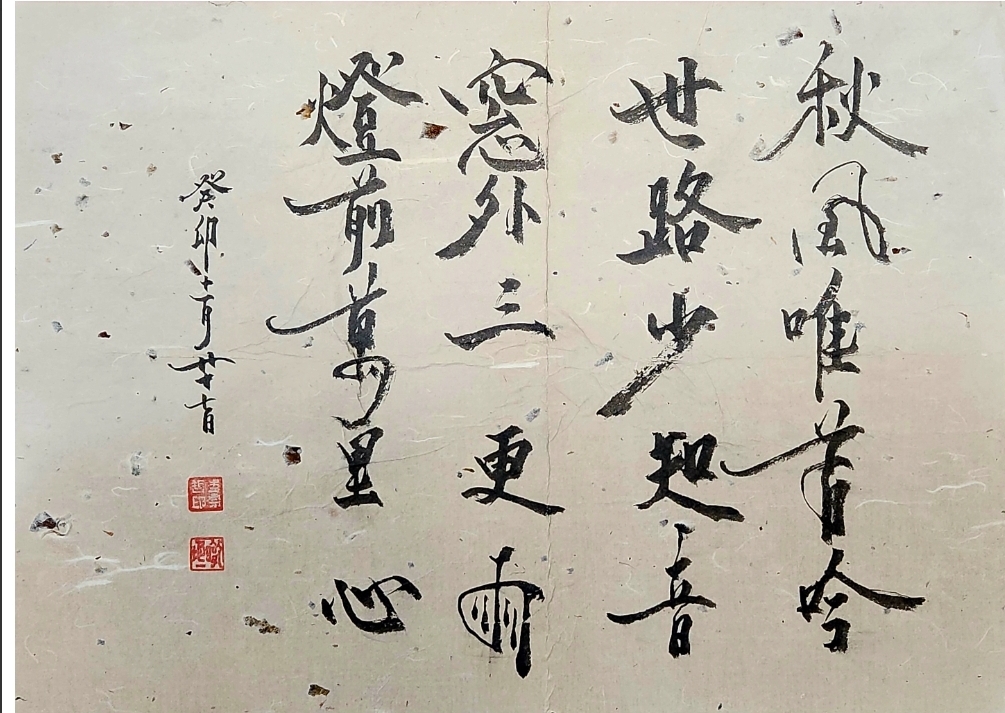 秋風唯苦吟
世路少知音
窓外三更雨
燈前萬里心
癸卯十月廿日